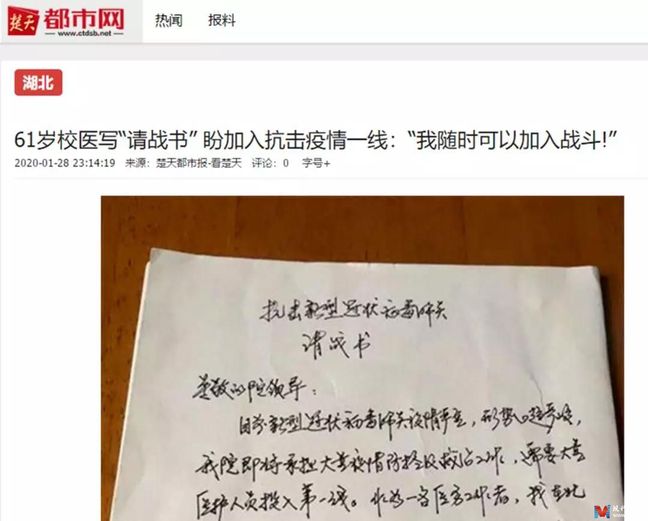 楚天都市网
www.ctdsb.net
热闻 报料
湖北
61岁校医写“请战书” 盼加入抗击疫情一线：“我随时可以加入战斗!”
2020-01-28 23:14:19 来源：楚天都市报-看楚天 评论：0 字号+
抗击新型冠状病毒肺炎
请战书
尊敬的院领导：
目前新型冠状病毒肺炎疫情严重，形势严峻，
我院即将承担大量疫情防控及救治工作，需要大量
医护人员投入第一线。作为一名医务工作者，我在此